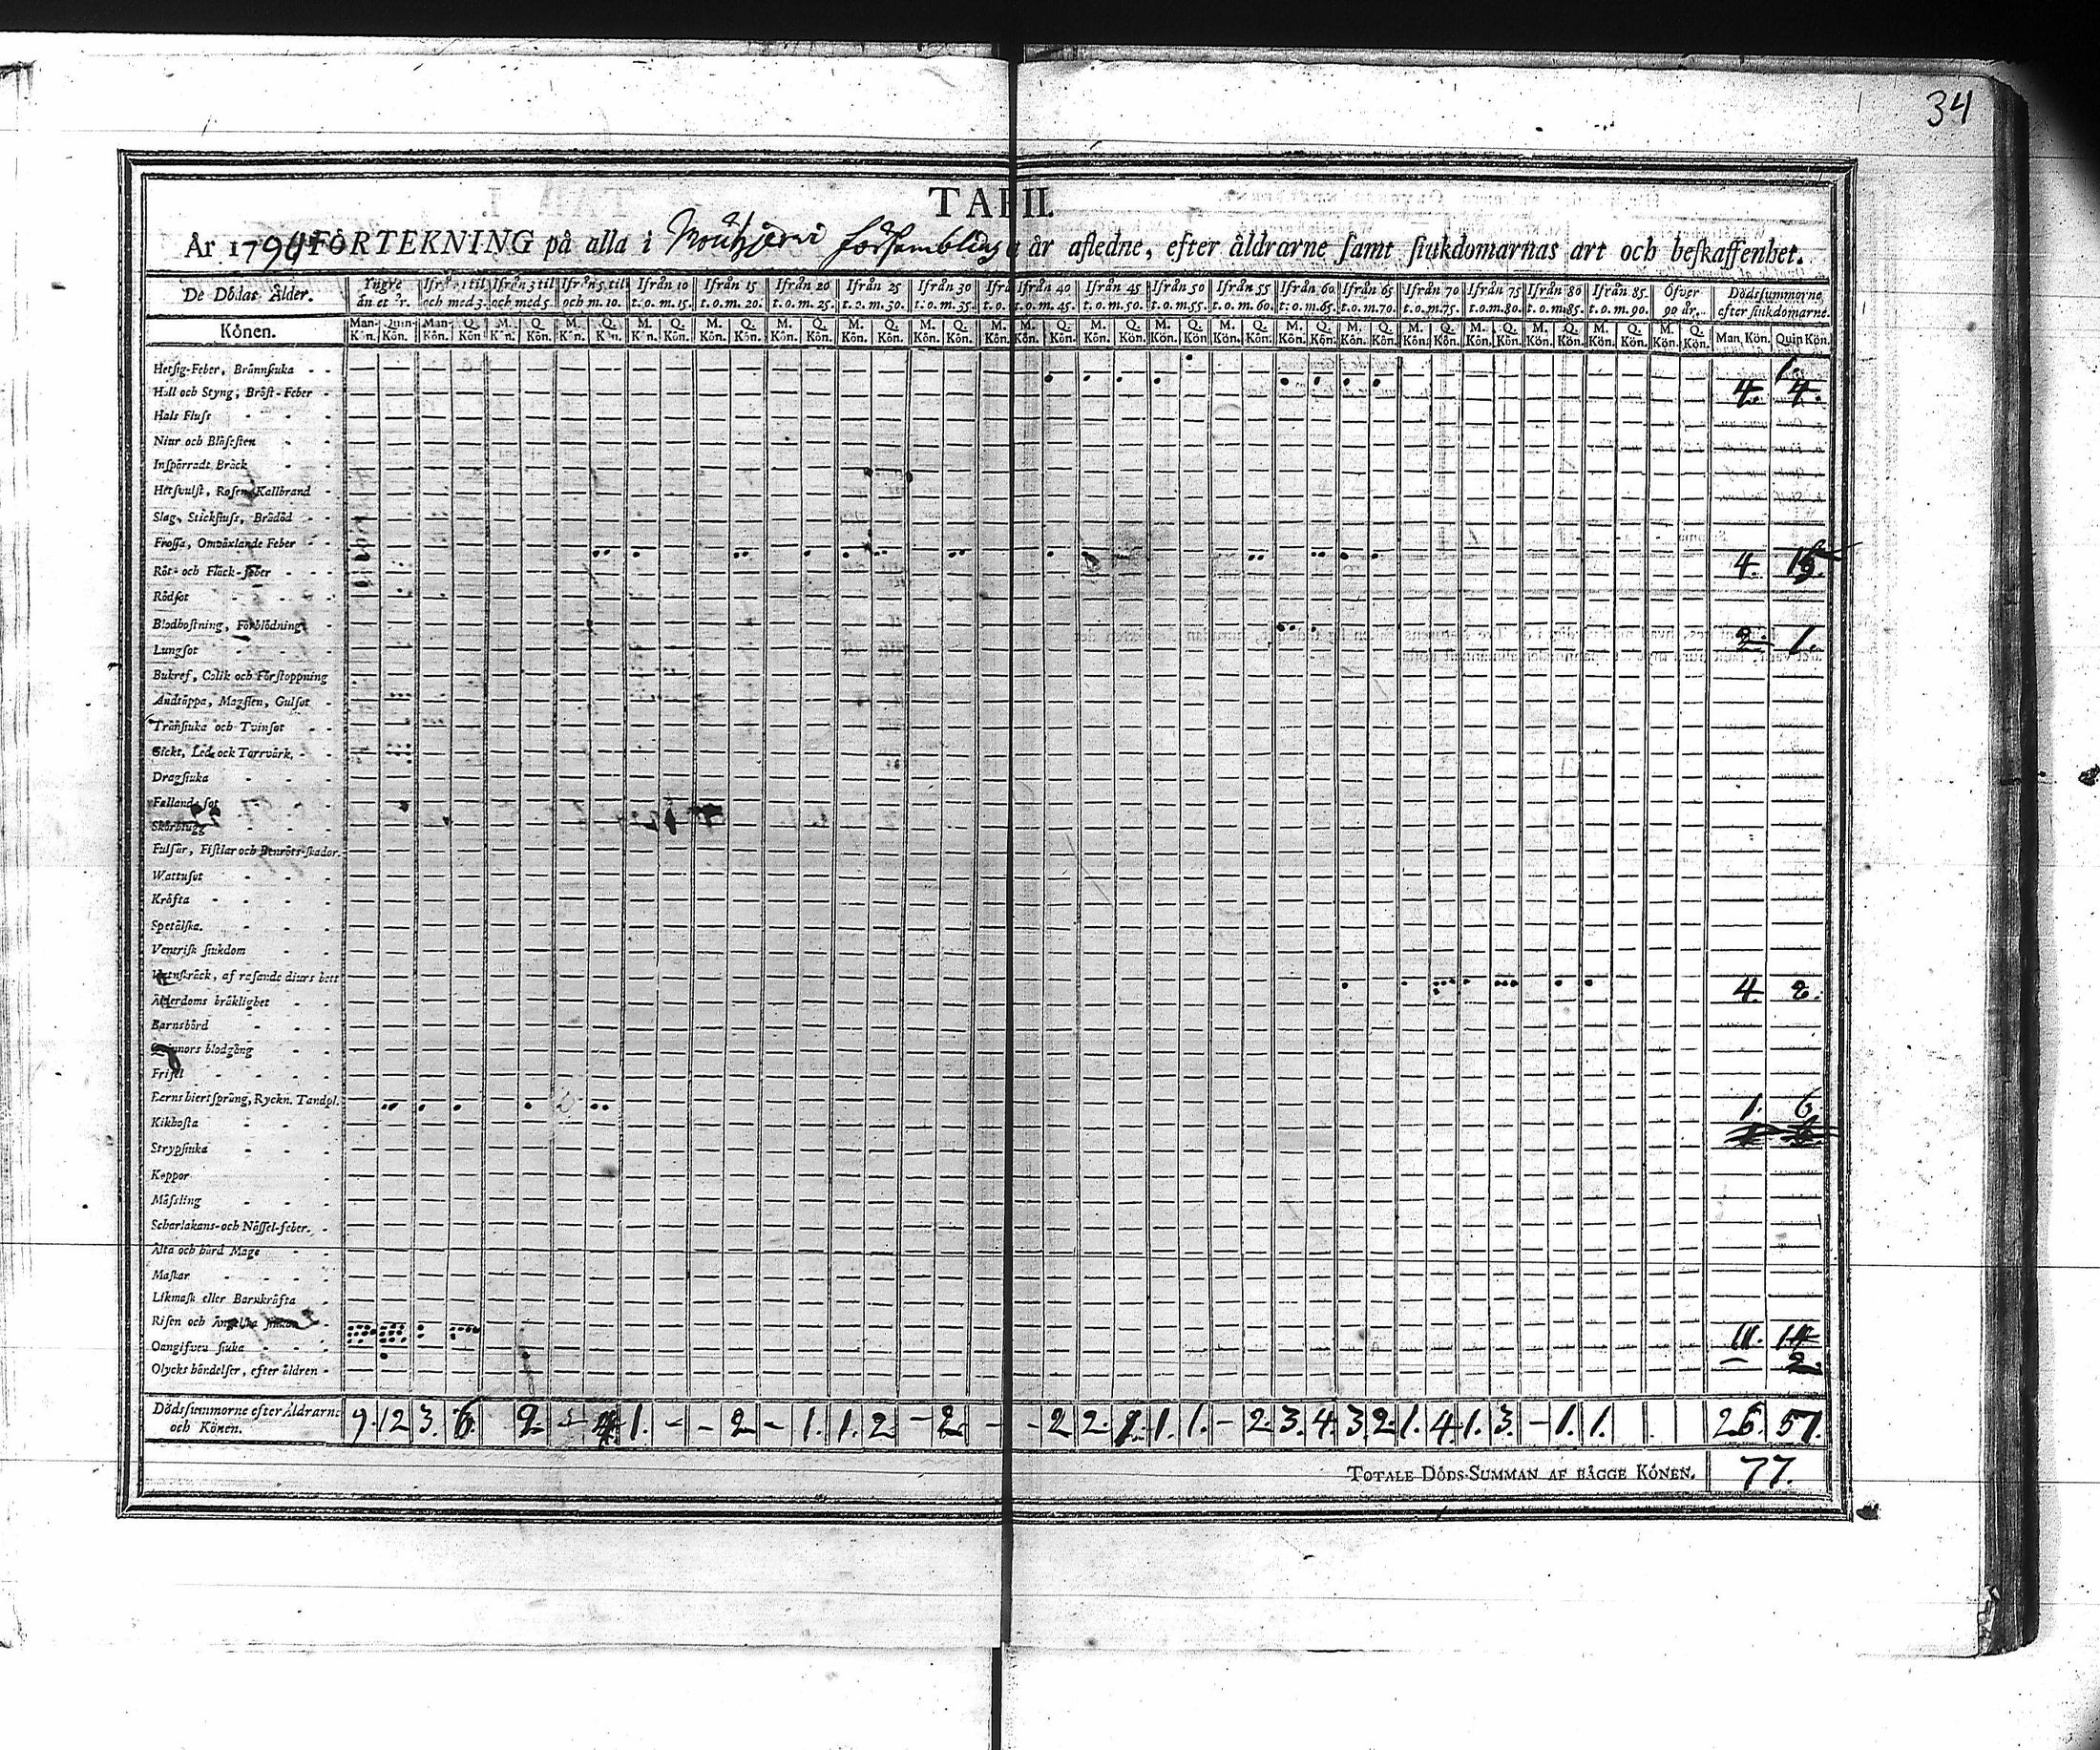 34
TAB II.
År 1794 FÖRTEKNING på alla i försambling år afledne, efter åldrarne samt siukdomarnas art och beskaffenhet.
De Dödas Ålder. Yngre än et år. Ifrån 1 til och med 3. Ifrån 3 til och med 5 Ifrån 5 til och m. 10. Ifrån 10 t. o. m. 15. Ifrån 15 t. o. m. 20. Ifrån 20 t. o. m. 25. Ifrån 25 t. o. m. 30. Ifrån 30 t. o. m. 35. Ifrån 40 t. o. m. 45. Ifrån 45 t. o. m. 50. Ifrån 50 t. o. m. 55. Ifrån 55 t. o. m. 60. Ifrån 60 t. o. m. 65. Ifrån 65 t. o. m. 70. Ifrån 70 t. o. m. 75. Ifrån 75 t. o. m. 80. Ifrån 80 t. o. m. 85. Ifrån 85. t. o. m. 90. Öfver 90 år. Dödssummorne efter siukdomarne.
Könen. Man-Kön. Quin-Kön. Man-Kön. Q. Kön M. Kön. Q. Kön. M. Kön. Q. Kön. M. Kön. Q. Kön. M. Kön. Q. Kön. M. Kön. Q. Kön. M. Kön. Q. Kön. M. Kön. Q. Kön. M. Kön. M. Kön. Q. Kön. M. Kön. Q. Kön. M. Kön. Q. Kön. M. Kön. Q. Kön. M. Kön. Q. Kön. M. Kön. Q. Kön. M. Kön. Q. Kön. M. Kön. Q. Kön. M. Kön. Q. Kön. M. Kön. Q. Kön. M. Kön. Q. Kön. Man. Kön. Quin Kön.
Hetsig-Feber, Brännsiuka 1.
Håll och Styng, Bröst-Feber 4. 4.
Hals Fluss
Niur och Blåsesten
Inspärradt Bråck
Hetsvulst, Rosen, Kallbrand
Slag, Stickfluss, Brådöd
Frossa, Omväxlande Feber
Röt- och Fläck-feber 4.
Rödsot
Blodhostning, Förblödning
Lungsot 2. 1.
Bukref, Colik och Förstoppning
Andtäppa, Magsten, Gulsot
Tränsiuka och Tvinsot
Gickt, Led- ock Torrvärk.
Dragsiuka
Fallande sot
Skörbiugg
Fulsår, Fistlar och Benröts-skador.
Wattusot
Kräfta
Spetälska.
Venerisk siukdom
Vatnskräck, af rasande diurs bett
Ålderdoms bräklighet 4.
Barnsbörd
Qvinnors blodgång
Frisel
Barns hiertsprång, Ryckn. Tandpl. 1. 6.
Kikhosta
Strypsiuka
Koppor
Mässling
Scharlakans- och Nässel-feber.
Älta och hård Mage
Maskar
Likmask eller Barnkräfta
Risen och Ängelska siukan
Oangifven siuka 11.
Olycks händelser, efter åldren - 2.
Dödssummorne efter Åldrarne och Könen. 9. 12 3. 6. 2. - 4 1. - - 2 - 1. 1. 2 - 2. - - 2 2. 1. 1. 1. - 2. 3. 4. 3. 2. 1. 4. 1. 3. - 1. 1. 26. 51.
TOTALE DÖDS-SUMMAN AF BÄGGE KÖNEN. 77.